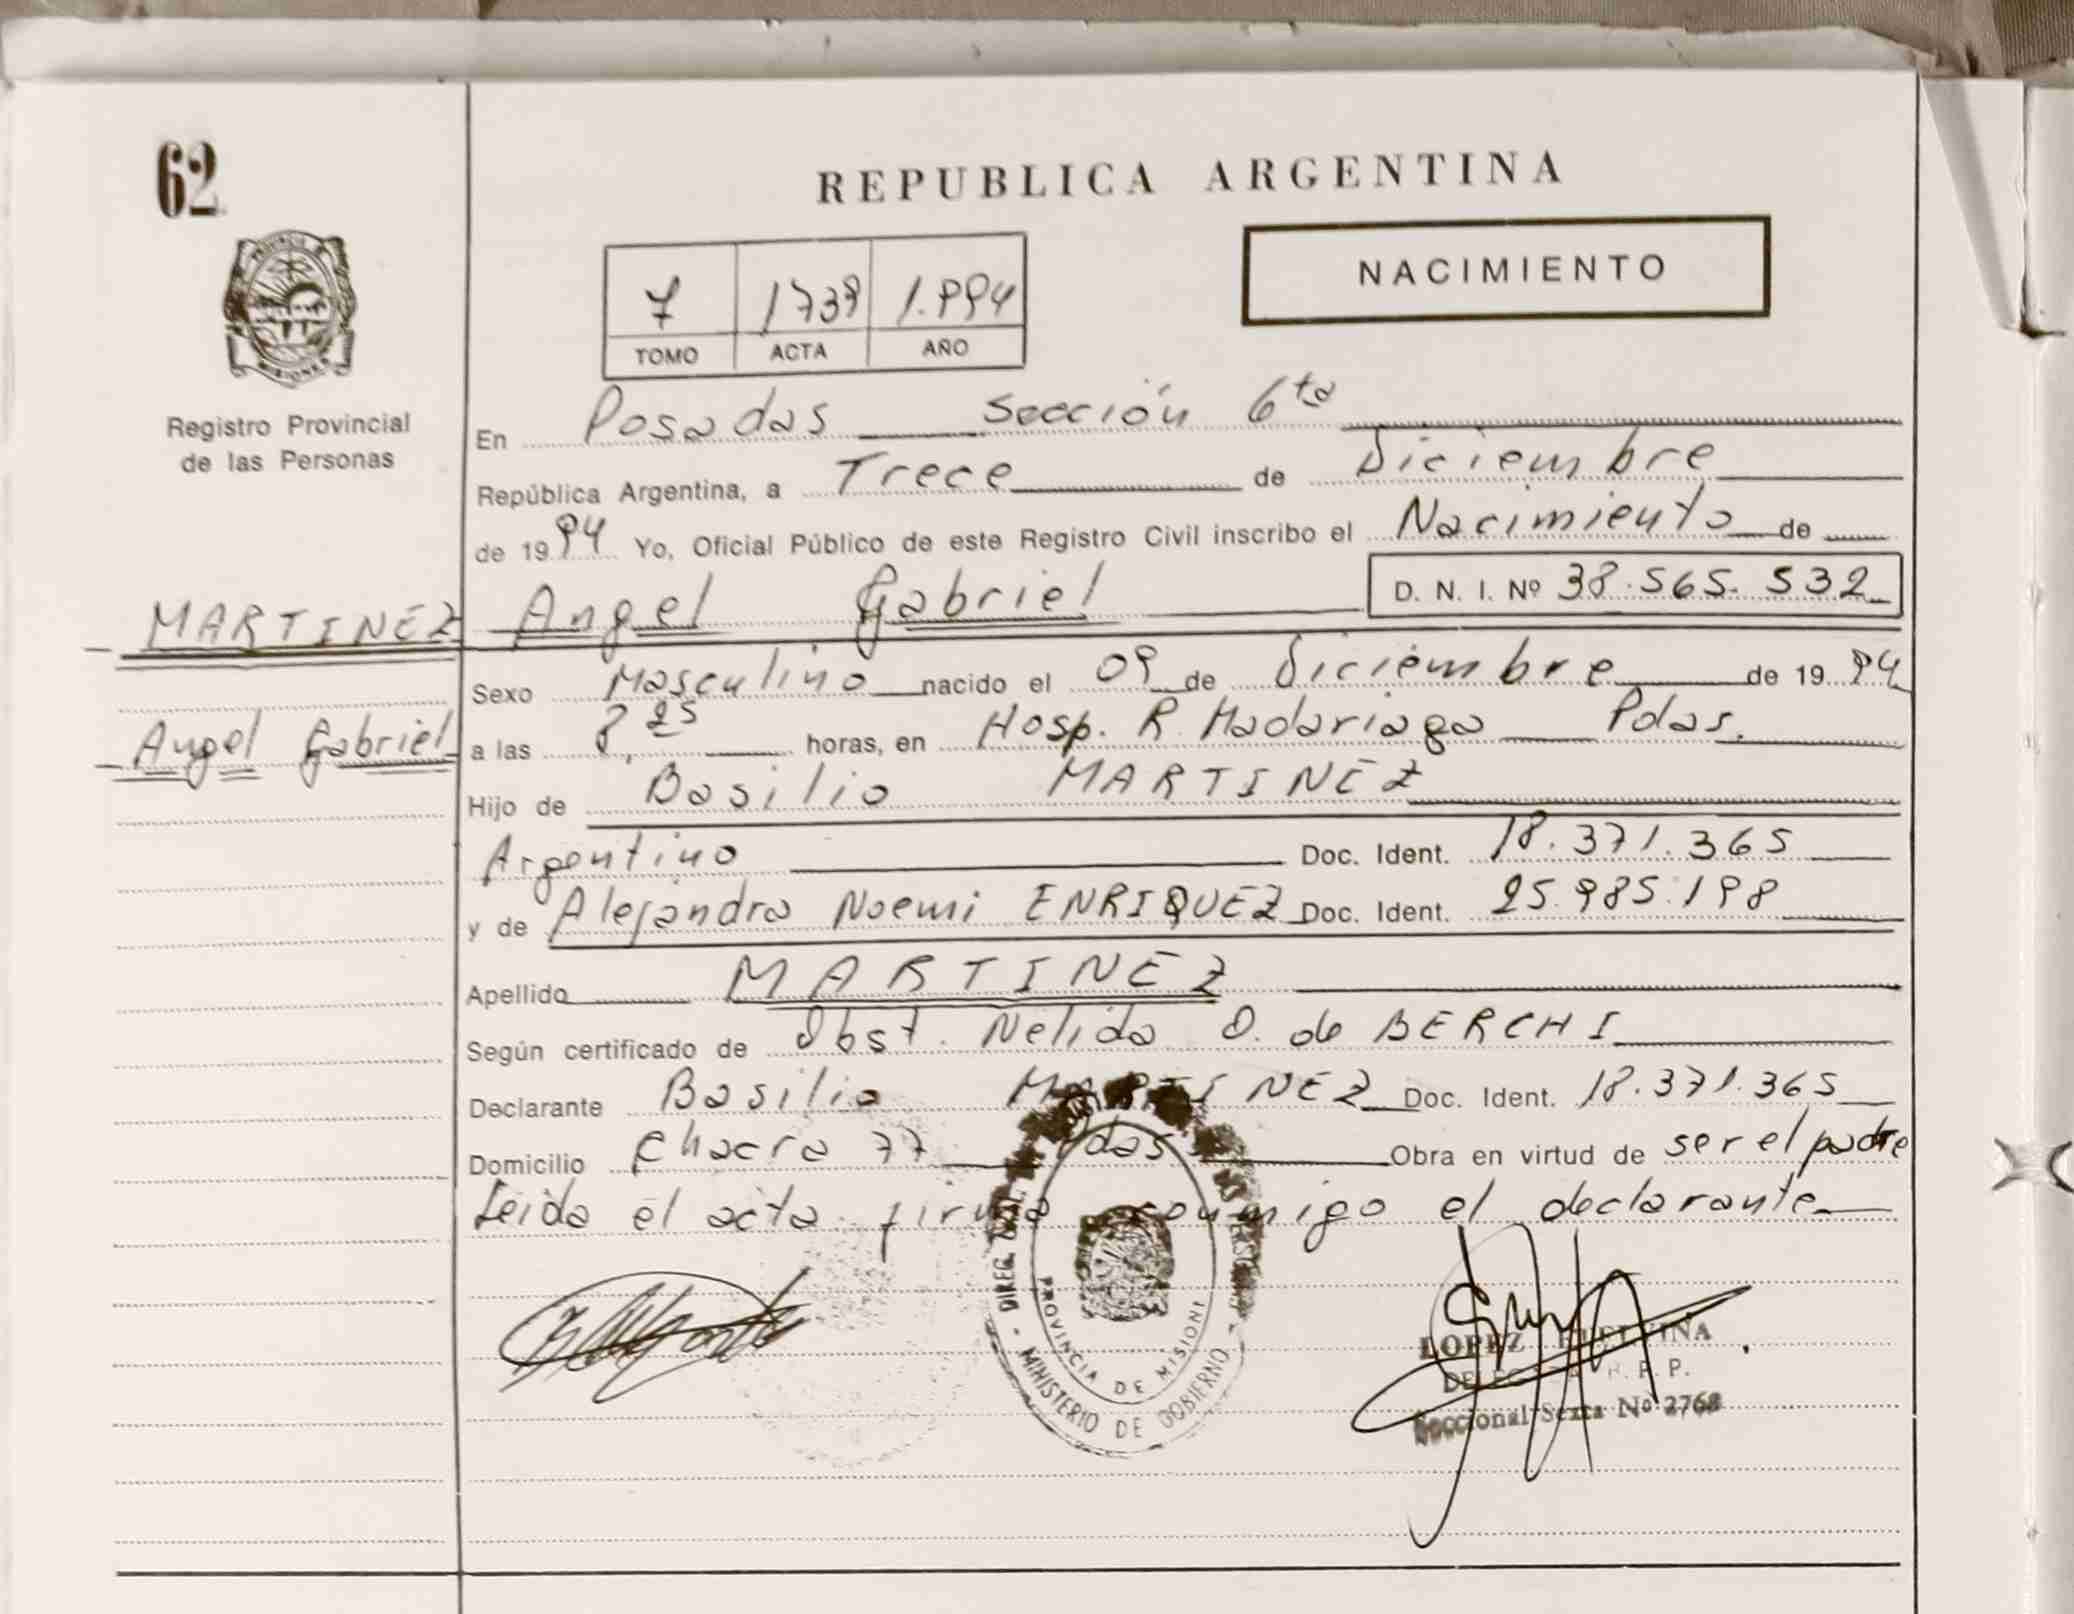 62
REPUBLICA ARGENTINA
NACIMIENTO
7 1739 1.994
TOMO ACTA AÑO
PROVINCIA DE MISIONES
Registro Provincial
de las Personas
En Posadas Sección 6ta
República Argentina, a Trece de Diciembre
de 1994 Yo, Oficial Público de este Registro Civil inscribo el Nacimiento de
MARTINEZ Angel Gabriel D. N. I. Nº 38.565.532
Sexo Masculino nacido el 09 de Diciembre de 1994
Angel Gabriel
a las 8,25 horas, en Hosp. R. Madariaga Pdas.
Hijo de Basilio MARTINEZ
Argentino Doc. Ident. 18.371.365
y de Alejandra Noemi ENRIQUEZ Doc. Ident. 25.985.198
Apellido MARTINEZ
Según certificado de Obst. Nelida O. de BERCHI
Declarante Basilio MARTINEZ Doc. Ident. 18.371.365
Domicilio Chacra 77 Pdas Obra en virtud de ser el padre
Leida el acta firma conmigo el declarante
DIREC. GRAL.
PROVINCIA DE MISIONES
- MINISTERIO DE GOBIERNO -
LOPEZ
R. P. P.
Seccional Sexta Nº 2768